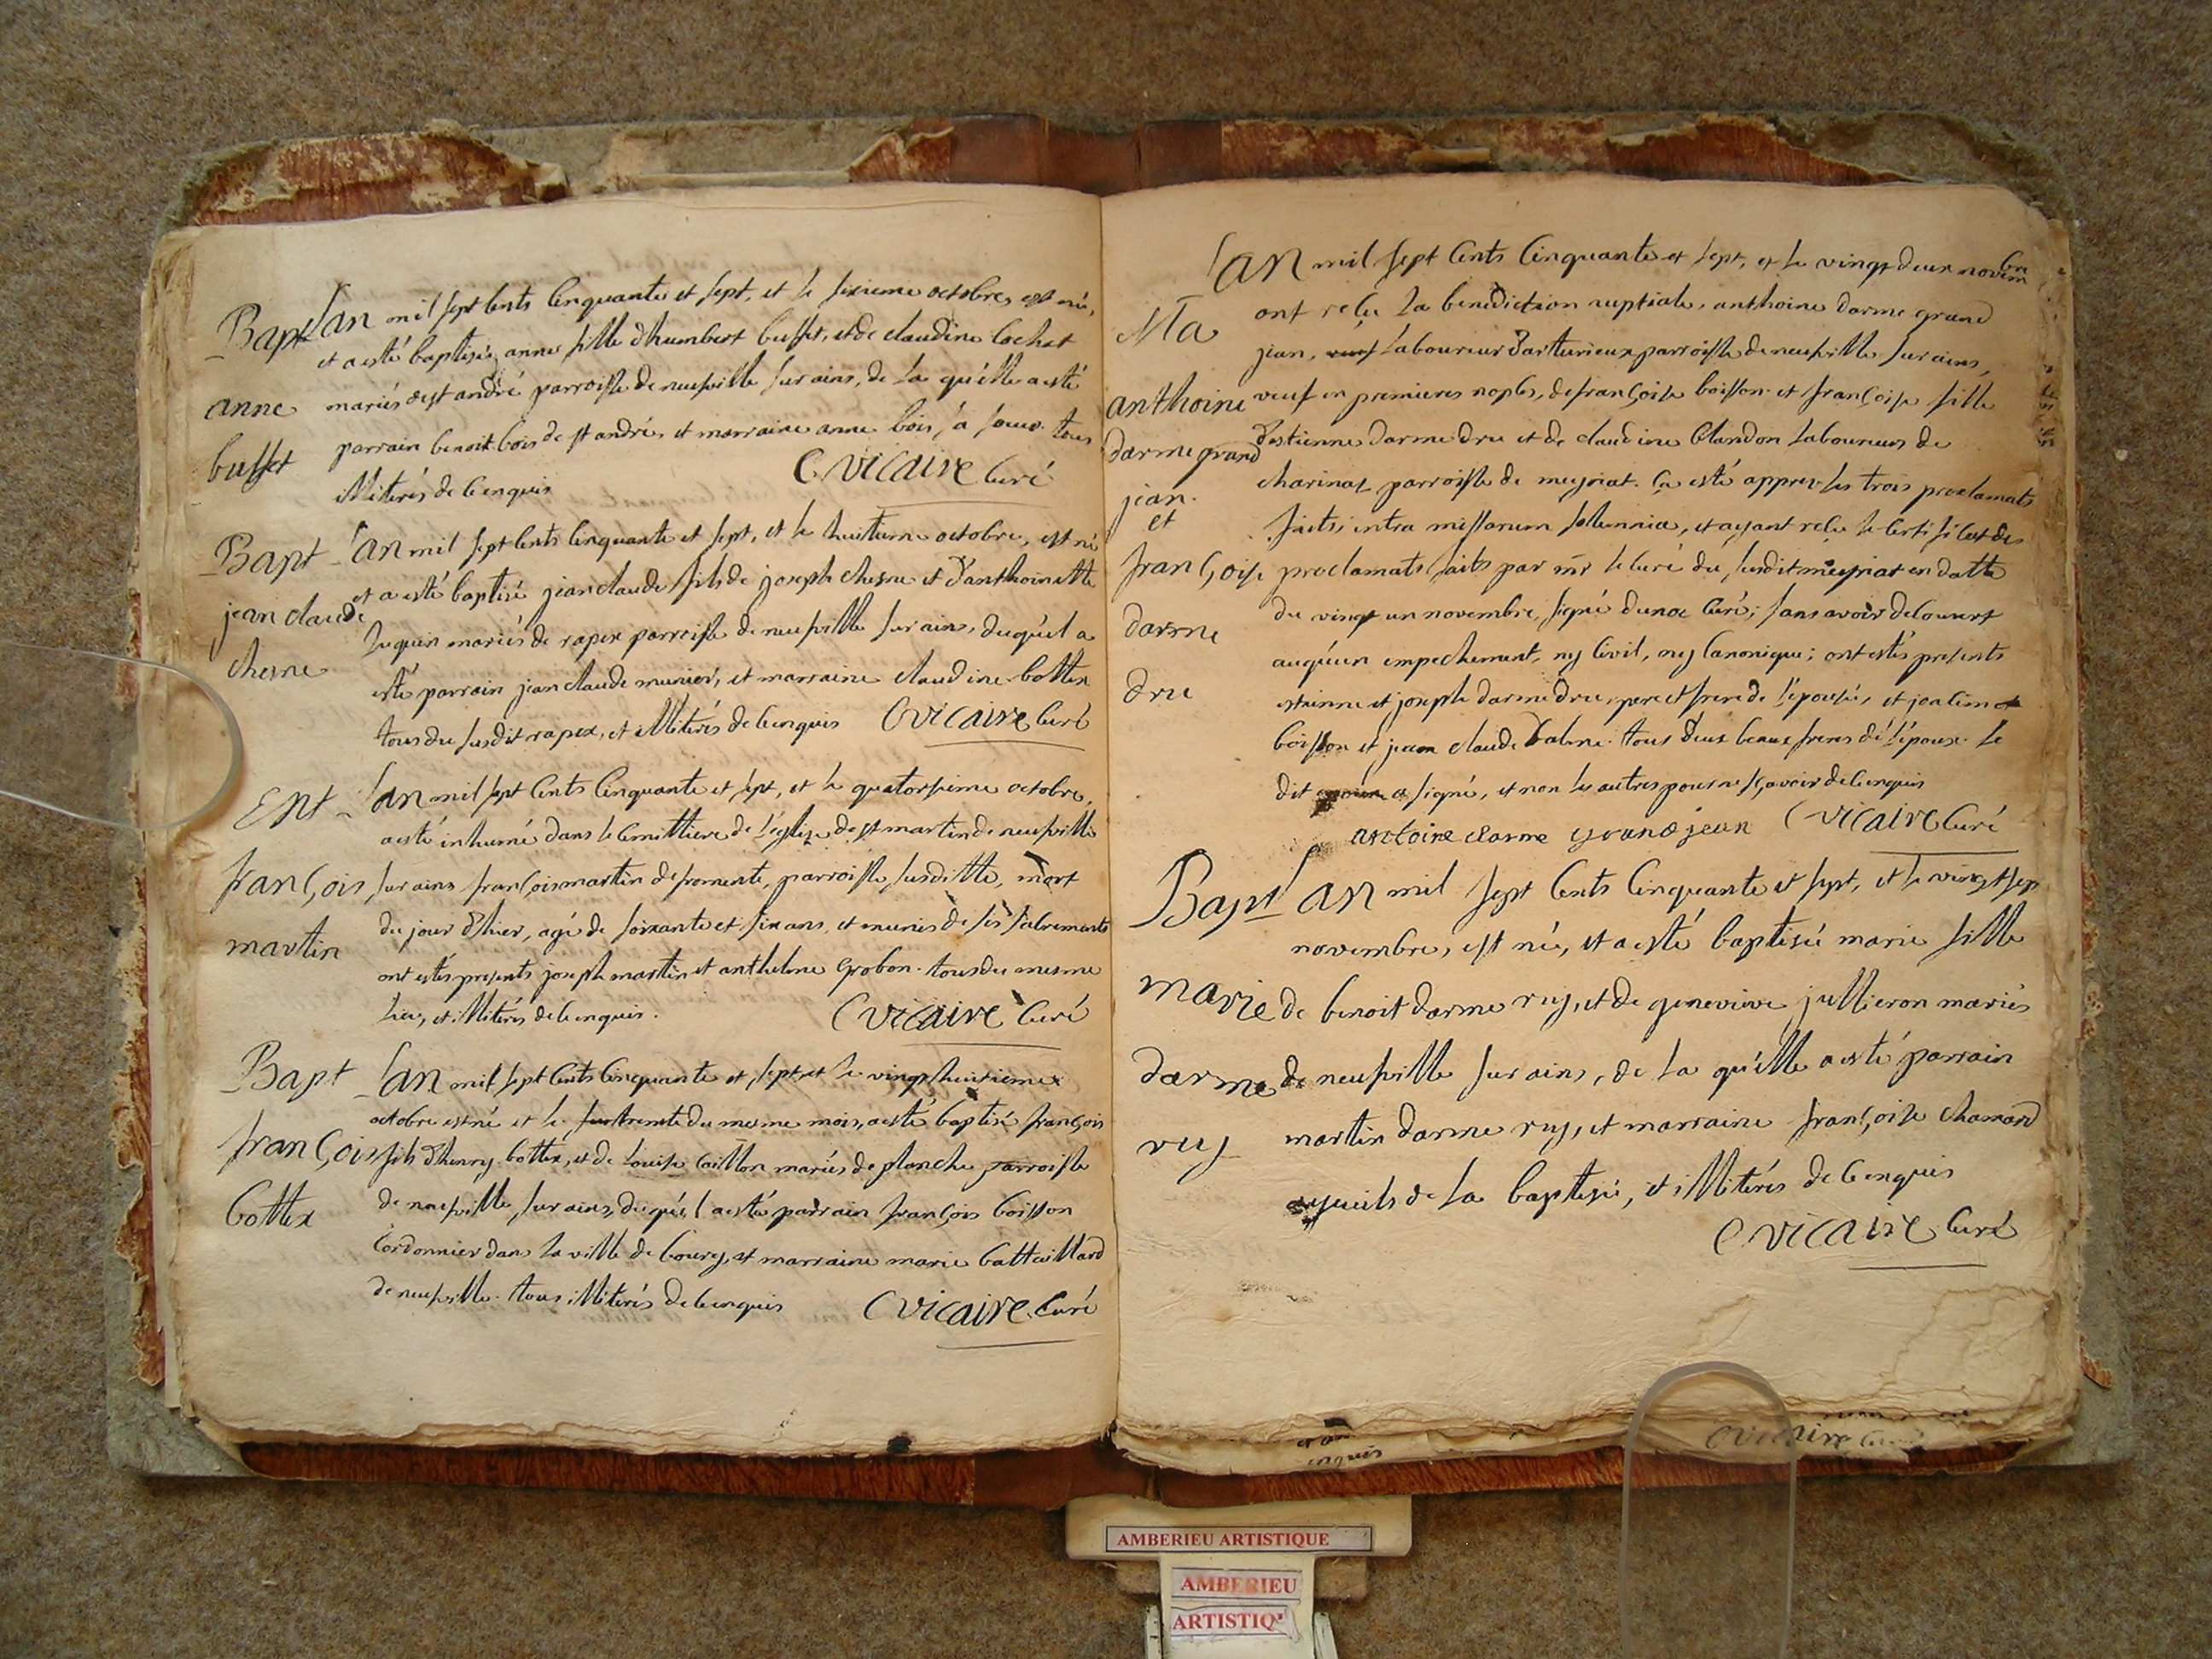 Bapt Lan mil sept cents cinquante et sept, et le sixieme octobre, est né,
et a esté baptisée anne fille dhumbert buffet, et de claudine cochet
anne mariés de st andré parroisse de neufville sur ains, de la quélle a esté
parrain benoit bois de st andré, et marraine anne bois, sa soeur. tous
buffet illiterés de ce enquis C vicaire curé
Bapt Lan mil sept cents cinquante et sept, et le huitieme octobre, est né
et a esté baptisé jean claude fils de joseph chesne et d'anthoinette
jean claude
juquin mariés de rapex parroisse de neufville sur ains, duquél a
chesne esté parrain jean claude munier, et marraine claudine bottex
tous du susdit rapex, et illiterés de ce enquis C vicaire curé
Ent Lan mil sept cents cinquante et sept, et le quatorsieme octobre,
a esté inhumé dans le cemittiere de l'église de st martin de neufville
françois sur ains françois martin de fromente, parroisse susditte, mort
du jour d'hier, agé de soixante et six ans, et munis de ses sacrements
martin
ont estés presents joseph martin et anthelme grobon. tous du mesme
lieu, et illiterés de ce enquis. C vicaire curé
Bapt Lan mil sept cents cinquante et sept, et le vingt huitieme
octobre est né et le trente du mesme mois, a esté baptisé françois
françois fils d'henry bottex, et de louise caillon mariés de planche parroisse
de neufville sur ains, duquél a esté parrain françois boisson
bottex
cordonnier dans la ville de bourg, et marraine marie battaillard
de neufville. tous illiterés de ce enquis C vicaire curé
Lan mil sept cents cinquante et sept, et le vingt deux novembre
Ma ont reçu la benediction nuptiale, anthoine darme grand
jean, veuf laboureur d'arturieux parroisse de neufville sur ains,
anthoine veuf en premieres nopces, de françoise boisson. et françoise fille
darme grand d'estienne darme dru et de claudine blandon laboureurs de
charinas parroisse de meyriat. ça esté appres les trois proclamats
jean.
et faits, intra missarum solemnia, et ayant reçu le certificat des
françoise proclamats faits par mr le curé du susdit meyriat en datte
darme du vingt un novembre, signé dunoc curé; sans avoir decouvert
auquéun empechement, ny civil, ny canonique; ont estés presents
dru estienne et joseph darme dru, pere et frere de l'épouse, et
boisson et jean claude balme. tous deux beaux freres de l'époux. le
dit a signé, et non les autres pour ne sçavoir de ce enquis
antoine darme grand jean C vicaire curé
Bapt Lan mil sept cents cinquante et sept, et le vingt sep
novembre, est né, et a esté baptisée marie fille
marie de benoit darme ruy, et de genevieve jullieron mariés
darme de neufville sur ains, de la quélle a esté parrain
ruy martin darme ruy, et marraine françoise chanard
ayeuils de la baptisée, et illiterés de ce enquis
C vicaire curé
enquis
C vicaire curé
AMBERIEU ARTISTIQUE
AMBERIEU
ARTISTIQ